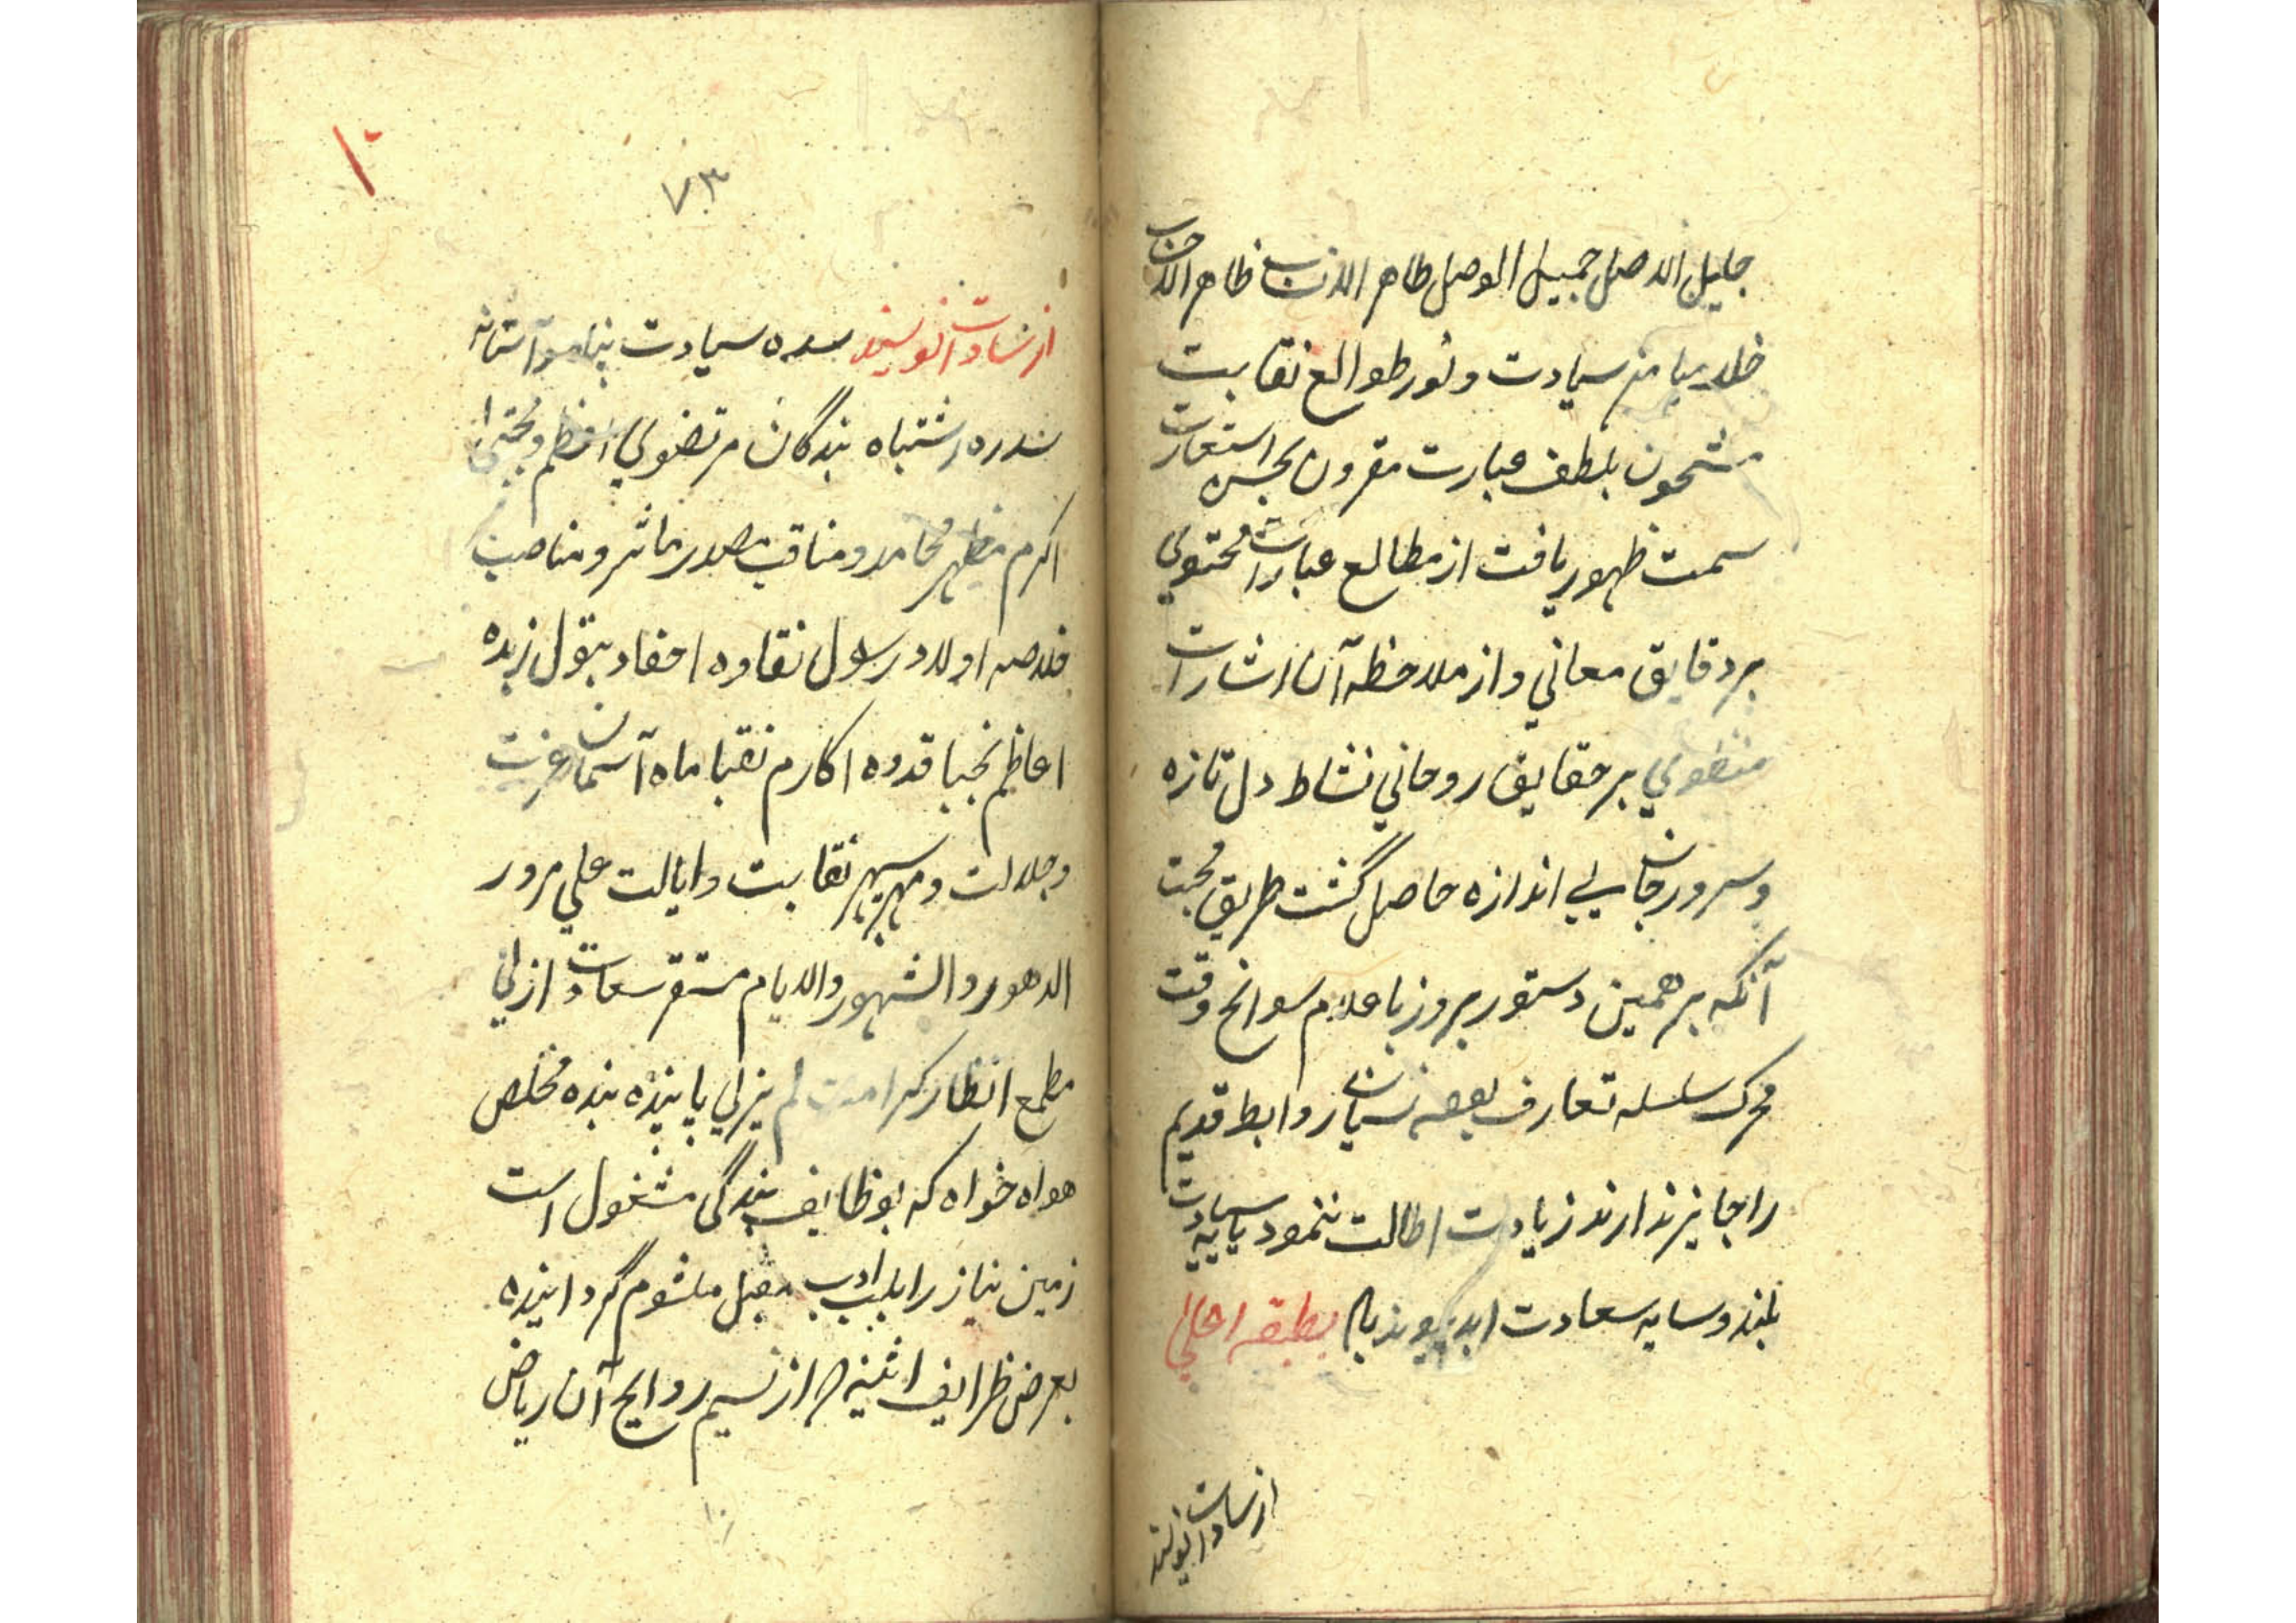 جلیل الاصل جمیل الوصل طاهر الانساب ظاهر الاحساب
خلد میامن سیادت و نور طوالع نقابت
مشحون بلطف عبارت مقرون بحسن استعارت
سمت ظهور یافت از مطالع عبارات محتوی
بر دقایق معانی و از ملاحظه آن اشارات
منطوی بر حقایق روحانی نشاط دل تازه
و سرور جان بی اندازه حاصل گشت طریق محبت
آنکه بر همین دستور بروز باعلام سوانح وقت
محرک سلسله تعارف بوده نسیان روابط قدیم
را جایز ندارند زیادت اطالت ننمود پایه سیادت
بلند و سایه سعادت ابد پیوند باد بطبقه اعلی
از سادات نویسند
۷۳
از سادات نویسند سده سیادت پناه و آستانه
سدره اشتباه بندگان مرتضوی اعظم و مجتبی
اکرم مظهر محامد و مناقب مصدر مآثر و مناصب
خلاصه اولاد رسول نقاوه احفاد بتول زبده
اعاظم نجبا قدوه اکارم نقبا ماه آسمان عزت
و جلالت و مهر سپهر نقابت و ایالت علی مرور
الدهور و الشهور والایام مستقر سعادت ازلی
مطمح انظار کرامت لم یزلی پاینده بنده مخلص
هواه خواه که بوظایف بندگی مشغول است
زمین نیاز را بلب ادب مقبل ملثوم گردانیده
بعرض ظرایف اثنیه که از نسیم روایح آن ریاض